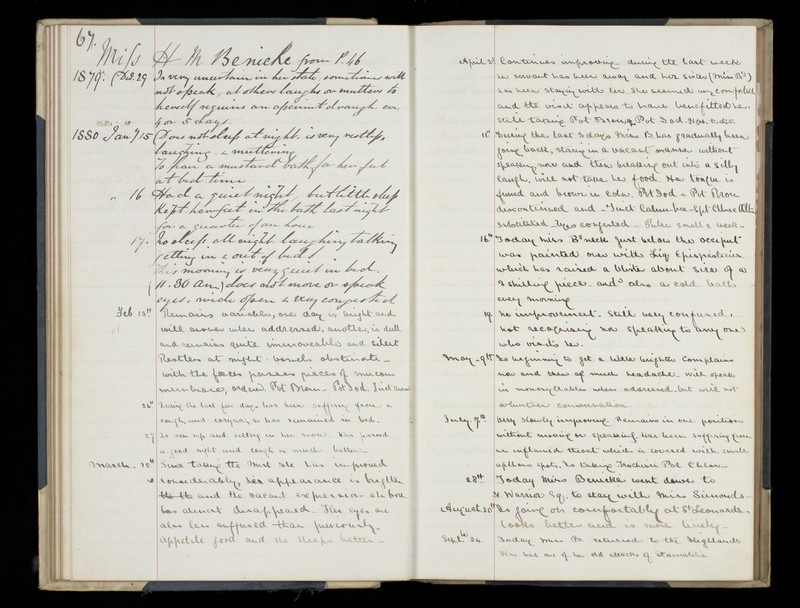 67.
Miss H M Benicke from P. 46
1879. Dec. 29 Is very uncertain in her state, sometimes will
not speak, at others laughs or mutters to
herself requires an aperient draught every
4 or 5 days.
1880 Jany 15 Does not sleep at night, is very restless,
laughing & muttering
To have a mustard bath for her feet
at bed time
" 16 Had a quiet night, but little sleep
Kept her feet in the bath last night
for a quarter of an hour
17. No sleep, all night laughing talking
getting in & out of bed
This morning is very quiet in bed.
(11.30 Am) does not move or speak
eyes wide open & very congested
Feb 18th Remains variable, one day is bright and
will answer when addressed, another, is dull
and remains quite immoveable and silent
Restless at night. bowels obstinate -
with the fæces passes pieces of mucous
membrane, ordered Pot Brom - Pot Iod.
24th During the last few days has been suffering from a
cough and coryza, so has remained in bed.
27 Is now up and sitting in her room. Has passed
a good night and cough is much better.
March 10th Since taking the Mist she has improved
considerably, her appearance is brighter
and the vacant expression she bore
has almost disappeared. Her eyes are
also less suffused than previously.
Appetite good and she sleeps better -
April 3d Continues improving during the last week
her servant has been away and her sister (Miss B's)
has been staying with her. She seemed very comfortable
and the visit appears to have benefitted her.
Still taking Pot Brom & Pot Iod.
15 During the last 3 days Miss B has gradually been
going back, staring in a vacant manner without
speaking, now and then breaking out into a silly
laugh, will not take her food. Her tongue is
furred and brown in color. Pot Iod & Pot Brom
discontinued and Tinct Calumbae
substituted. Eyes congested - Pulse small & weak -
16th Today Miss B's neck just below the occiput
was painted over with Liq Epispasticus
which has raised a blister about size of a
2 shilling piece. and also a cold bath
every morning
19 No improvement. Still very confused,
not recognising nor speaking to any one
who visits her.
May 9th Is beginning to get a little brighter Complains
now and then of much headache. Will speak
in monosyllables when addressed. but will not
volunteer conversation.
July 7th Very slowly improving Remains in one position
without moving or speaking. Has been suffering from
an inflamed throat which is covered with small
apthous spots. Is taking Pot Chlor
28th Today Miss Benicke went down to
Warrior Sq. to stay with Miss Simonds -
August 20th Is going on comfortably at St Leonards.
Looks better and is more lively -
Septr 24. Today Miss B. returned to the Highlands
Has had one of her old attacks of